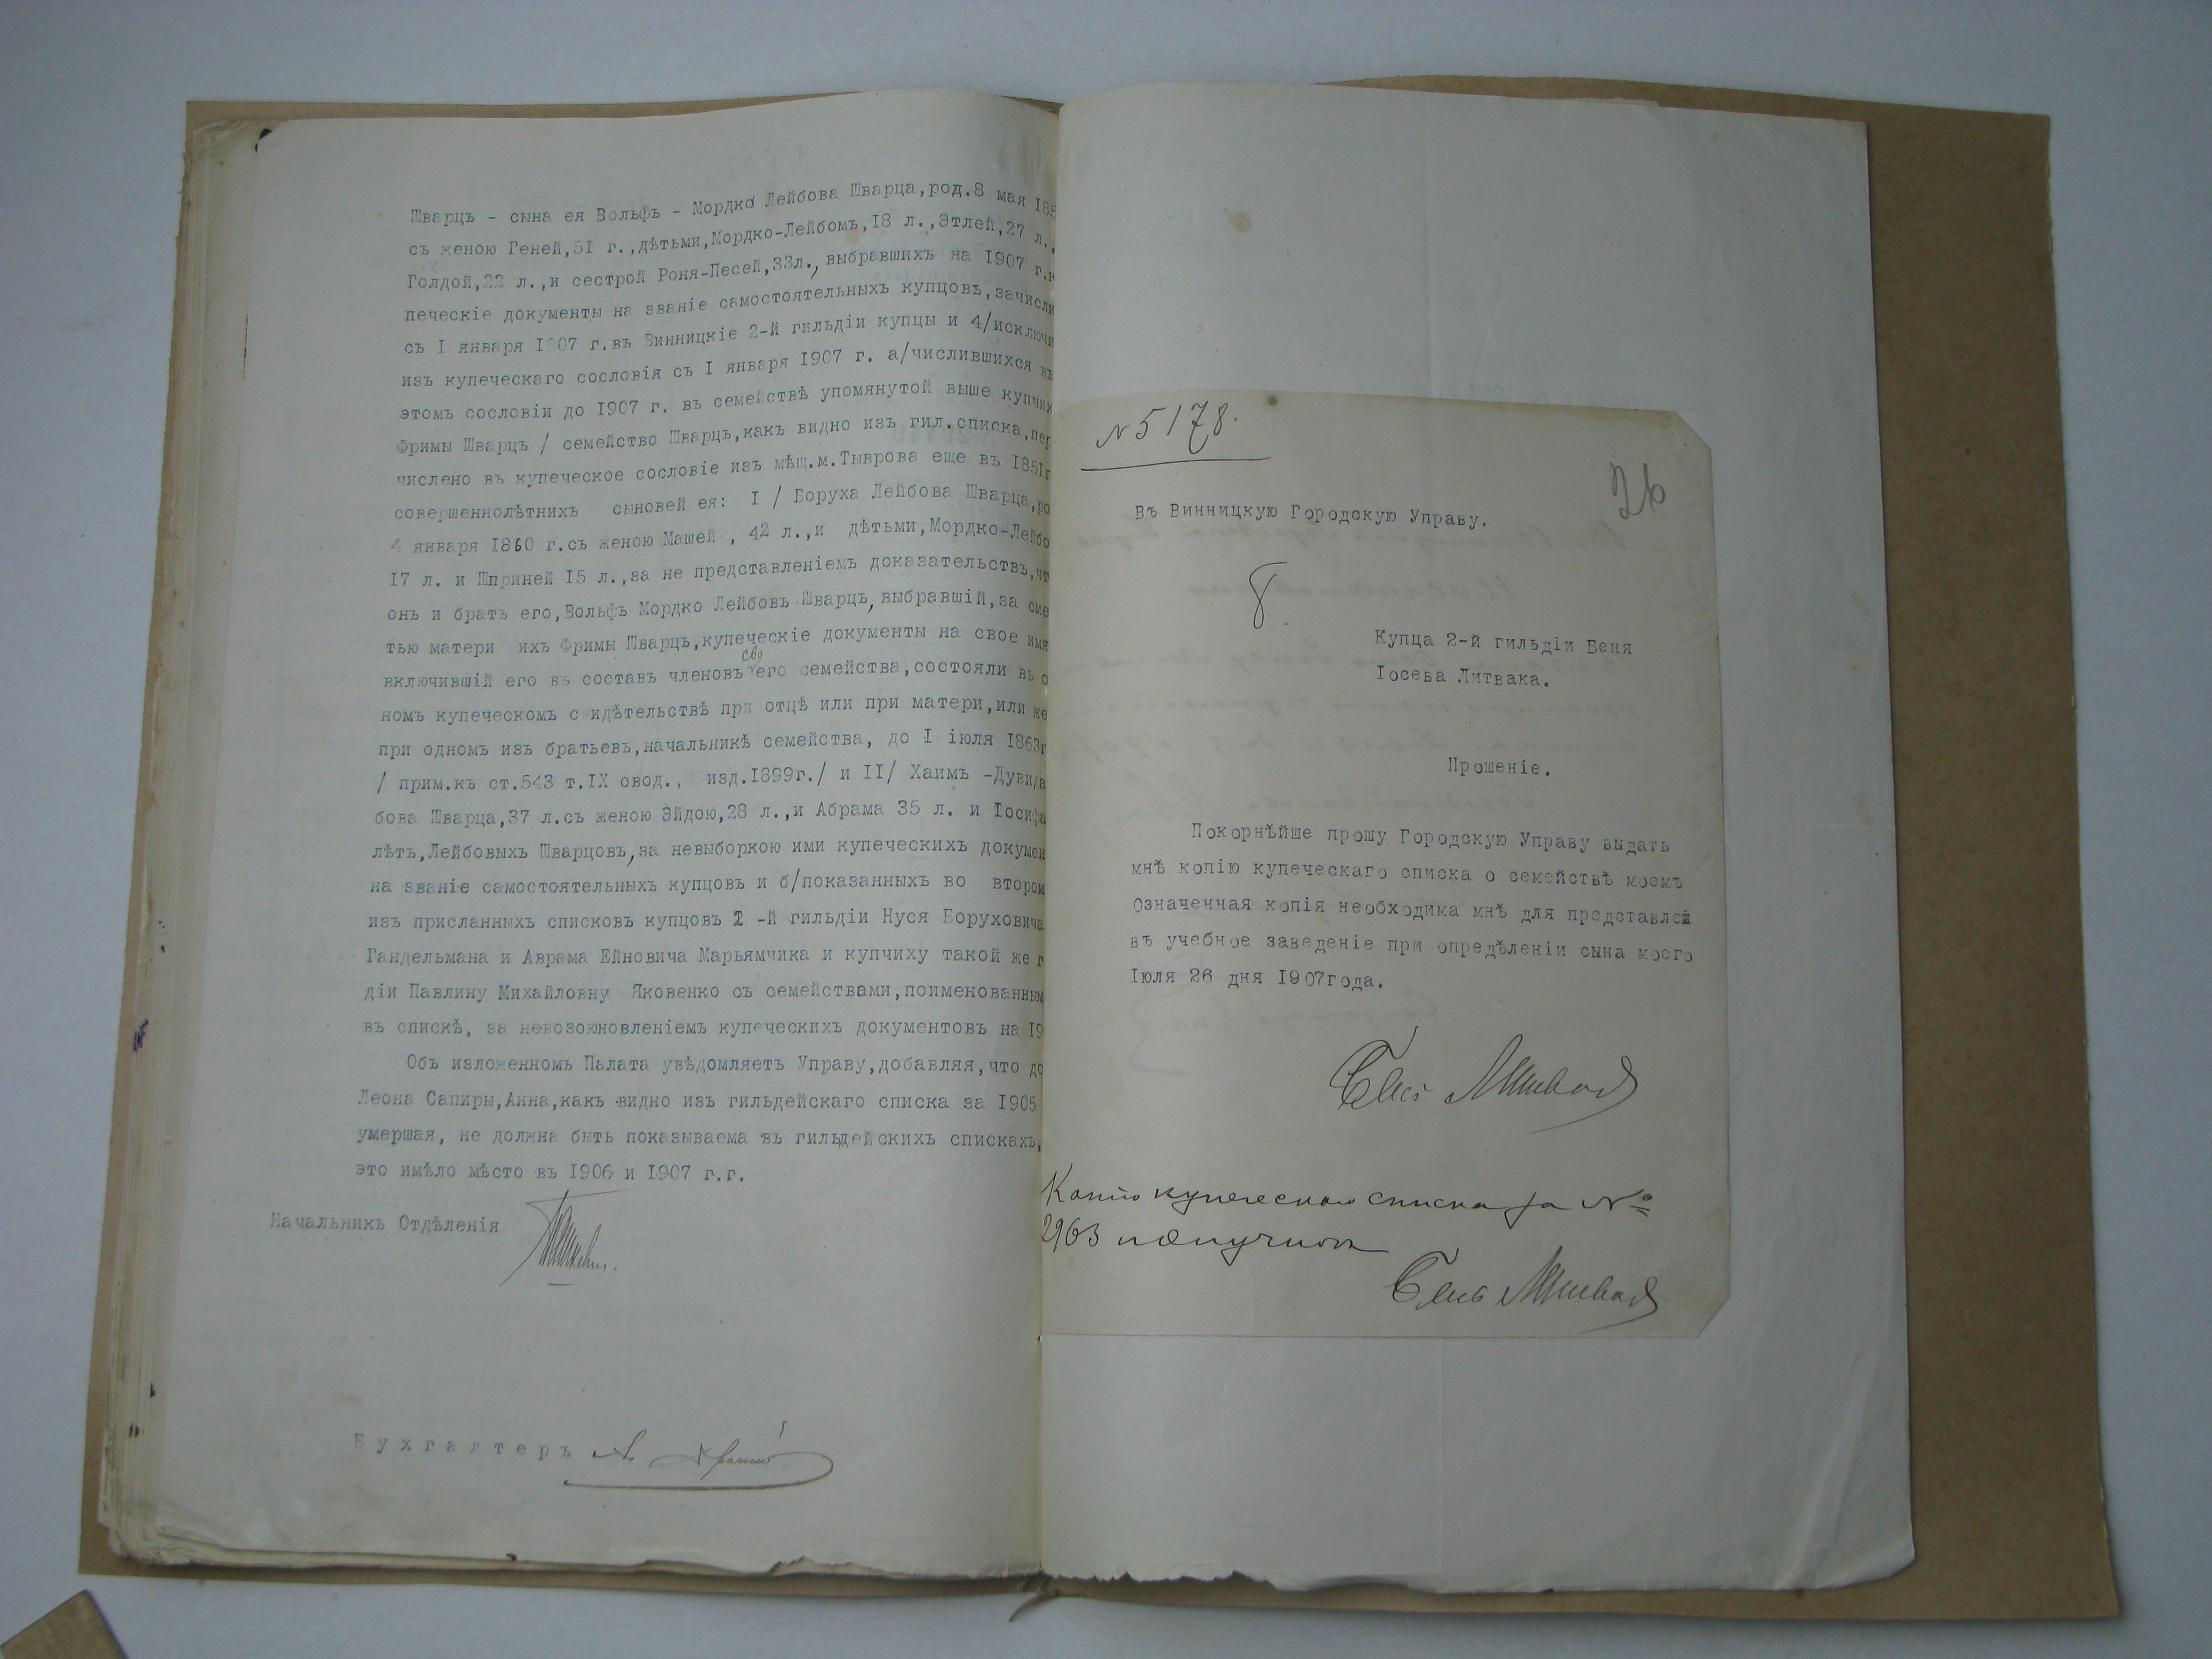 Шварцъ - сына ея Вольфъ - Мордко Лейбова Шварца,род.8 мая 185
съ женою Геней,51 г.,дѣтьми,Мордко-Лейбомъ,18 л.,Этлей,27 л.,
Голдой,22 л.,и сестрой Роня-Песей,33л.,выбравшихъ на 1907 г.к
печескіе документы на званіе самостоятельныхъ купцовъ,зачисли
съ I января 1907 г.въ Винницкіе 2-й гильдіи купцы и 4/исключи
изъ купеческаго сословія съ I января 1907 г. а/числившихся въ
этомъ сословіи до 1907 г. въ семействѣ упомянутой выше купчих
Фримы Шварцъ / семейство Шварцъ,какъ видно изъ гил.списка,пер
числено въ купеческое сословіе изъ мѣщ.м.Тыврова еще въ 1851г
совершеннолѣтнихъ сыновей ея: I / Боруха Лейбова Шварца,ро
4 января 1860 г.съ женою Машей , 42 л.,и дѣтьми,Мордко-Лейбо
17 л. и Шприней 15 л.,за не представленіемъ доказательствъ,чт
онъ и братъ его,Вольфъ Мордко Лейбовъ Шварцъ,выбравшій,за сме
тью матери ихъ Фримы Шварцъ,купеческіе документы на свое имя
включившій его въ составъ членовъ своего семейства,состояли въ о
номъ купеческомъ свидѣтельствѣ при отцѣ или при матери,или же
при одномъ изъ братьевъ,начальникѣ семейства, до I іюля 1863г
/ прим.къ ст.543 т.IX свод., изд.1899г./ и II/ Хаимъ -Дувида
бова Шварца,37 л.съ женою Эйдою,28 л.,и Абрама 35 л. и Іосифа
лѣтъ,Лейбовыхъ Шварцовъ,за невыборкою ими купеческихъ докумен
на званіе самостоятельныхъ купцовъ и б/показанныхъ во втором
изъ присланныхъ списковъ купцовъ 2 -й гильдіи Нуся Боруховича
Гандельмана и Аврама Ейновича Марьямчика и купчиху такой же г
діи Павлину Михайловну Яковенко съ семействами,поименованным
въ спискѣ, за невозоюновленіемъ купеческихъ документовъ на 19
Объ изложенномъ Палата увѣдомляетъ Управу,добавляя,что до
Леона Сапиры,Анна,какъ видно изъ гильдейскаго списка за 1905
умершая, не должна быть показываема въ гильдейскихъ спискахъ,
это имѣло мѣсто въ 1906 и 1907 г.г.
Начальникъ Отдѣленія
Бухгалтеръ
№ 5178.
26
Въ Винницкую Городскую Управу.
Купца 2-й гильдіи Беня
Іосева Литвака.
Прошеніе.
Покорнѣйше прошу Городскую Управу выдать
мнѣ копію купеческаго списка о семействѣ моемъ
Означенная копія необходима мнѣ для представлей
въ учебное заведеніе при опредѣленіи сына моего
Іюля 26 дня 1907года.
Бень Литвакъ
Копію купеческаго списка за №
2963 получилъ
Бень Литвакъ